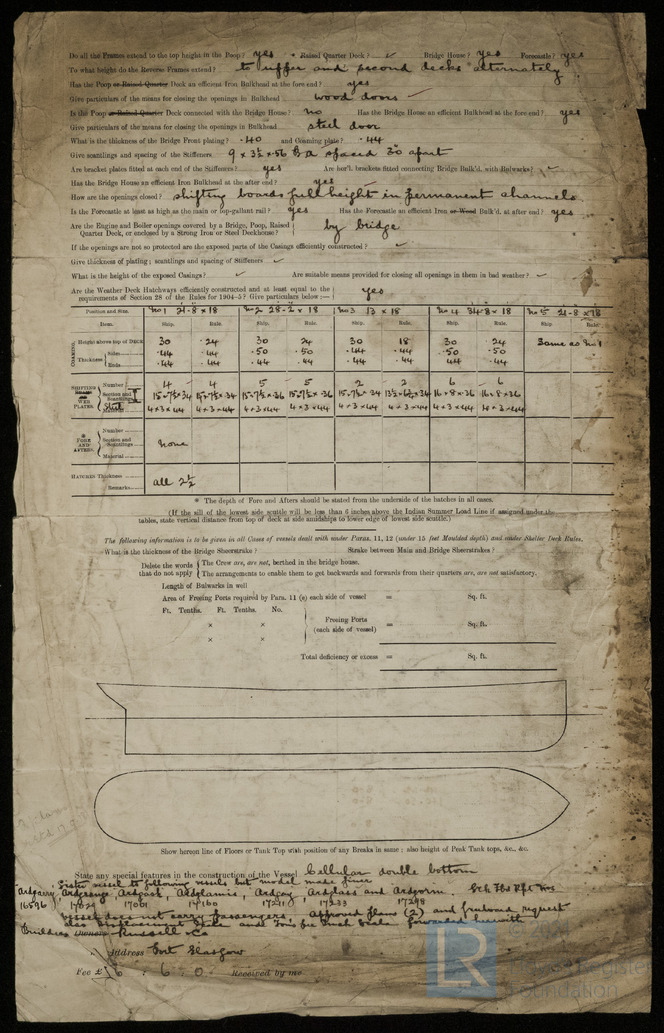 Do all the Frames extend to the top height in the Poop? yes Raised Quarter Deck? ✓ Bridge House? yes Forecastle? yes
To what height do the Reverse Frames extend? to upper and second decks alternately
Has the Poop or Raised Quarter Deck an efficient Iron Bulkhead at the fore end? yes
Give particulars of the means for closing the openings in Bulkhead wood doors
Is the Poop or Raised Quarter Deck connected with the Bridge House? no Has the Bridge House an efficient Bulkhead at the fore end? yes
Give particulars of the means for closing the openings in Bulkhead steel door
What is the thickness of the Bridge Front plating? .40 and Coaming plate? .44
Give scantlings and spacing of the Stiffeners 9 x 3½ x .56 BA spaced 30 apart
Are bracket plates fitted at each end of the Stiffeners? yes Are horl. brackets fitted connecting Bridge Bulk'd. with Bulwarks? ✓
Has the Bridge House an efficient Iron Bulkhead at the after end? yes
How are the openings closed? shifting boards full height in permanent channels
Is the Forecastle at least as high as the main or top-gallant rail? yes Has the Forecastle an efficient Iron or Wood Bulk'd. at after end? yes
Are the Engine and Boiler openings covered by a Bridge, Poop, Raised
Quarter Deck, or enclosed by a Strong Iron or Steel Deckhouse? by bridge
If the openings are not so protected are the exposed parts of the Casings efficiently constructed? ✓
Give thickness of plating; scantlings and spacing of Stiffeners ✓
What is the height of the exposed Casings? ✓ Are suitable means provided for closing all openings in them in bad weather? ✓
Are the Weather Deck Hatchways efficiently constructed and at least equal to the
requirements of Section 28 of the Rules for 1904-5? Give particulars below:— yes
Position and Size. No 1 21-8 x 18 No 2 28-2 x 18 No 3 13 x 18 No 4 34-8 x 18 No 5 21-8 x 18
Item. Ship. Rule. Ship. Rule. Ship. Rule. Ship. Rule. Ship. Rule.
COAMING. Height above top of DECK 30 24 30 24 30 18 30 24 Same as No 1
Thickness Sides .44 .44 .50 .50 .44 .44 .50 .50
Ends .44 .44 .44 .44 .44 .44 .44 .44
SHIFTING WEB PLATES. Number 4 4 5 5 2 2 6 6
Section and Scantlings
4 x 3 x 44 4 x 3 x 44 4 x 3 x 44 4 x 3 x 44 4 x 3 x 34 4 x 3 x 44 4 x 3 x 44 4 x 3 x 44
* FORE AND AFTERS. Number
Section and Scantlings none
Material
HATCHES Thickness all 2½
Remarks
* The depth of Fore and Afters should be stated from the underside of the hatches in all cases.
(If the sill of the lowest side scuttle will be less than 6 inches above the Indian Summer Load Line if assigned under the
tables, state vertical distance from top of deck at side amidships to lower edge of lowest side scuttle.)
The following information is to be given in all Cases of Vessels dealt with under Paras. 11, 12 (under 15 feet Moulded depth) and under Shelter Deck Rules.
What is the thickness of the Bridge Sheerstrake? Strake between Main and Bridge Sheerstrakes?
Delete the words that do not apply { The Crew are, are not, berthed in the bridge house.
The arrangements to enable them to get backwards and forwards from their quarters are, are not satisfactory.
Length of Bulwarks in well
Area of Freeing Ports required by Para. 11 (e) each side of vessel = Sq. ft.
Ft. Tenths. Ft. Tenths. No.
× ×
× ×
Freeing Ports (each side of vessel) = Sq. ft.
Total deficiency or excess = Sq. ft.
Show hereon line of Floors or Tank Top with position of any Breaks in same; also height of Peak Tank tops, &c., &c.
State any special features in the construction of the Vessel Cellular double bottom
Sister vessel to following vessels but model made finer
Ardgarry, Ardgrange, Ardgask, Ardglamis, Ardgay, Ardglass and Ardgorm.
16596 17029 17061 17160 17233 17298
vessel does not carry passengers, Approved plans (2) and freeboard request
forwarded herewith
Builders Owners Russell & Co
Address Port Glasgow
Fee £ 6 : 6 : 0 Received by me
LR
Lloyd's Register
Foundation